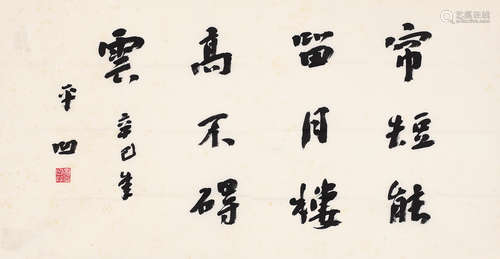 帘短能
留月楼
高不碍
雲
辛巳年
平凹